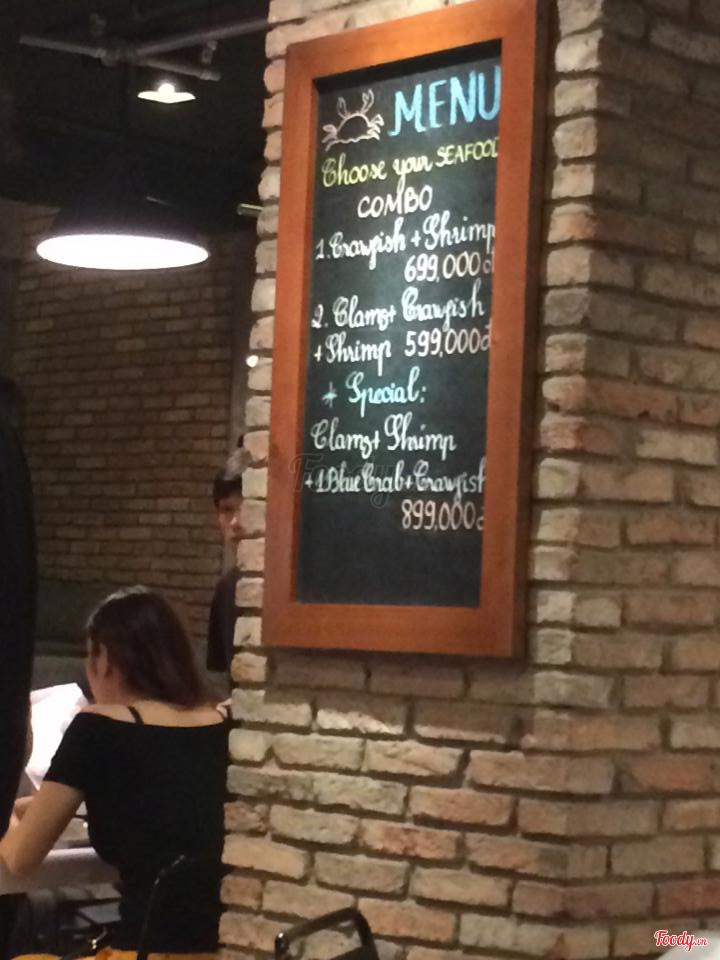 MENU
Choose your SEAFOOD
COMBO
1. Crawfish + Shrimp
699,000đ
2. Clams + Crawfish
+ Shrimp 599,000đ
+ Special:
Clams + Shrimp
+ 1 Blue Crab + Crawfish
899,000đ
Foody
Foody.vn